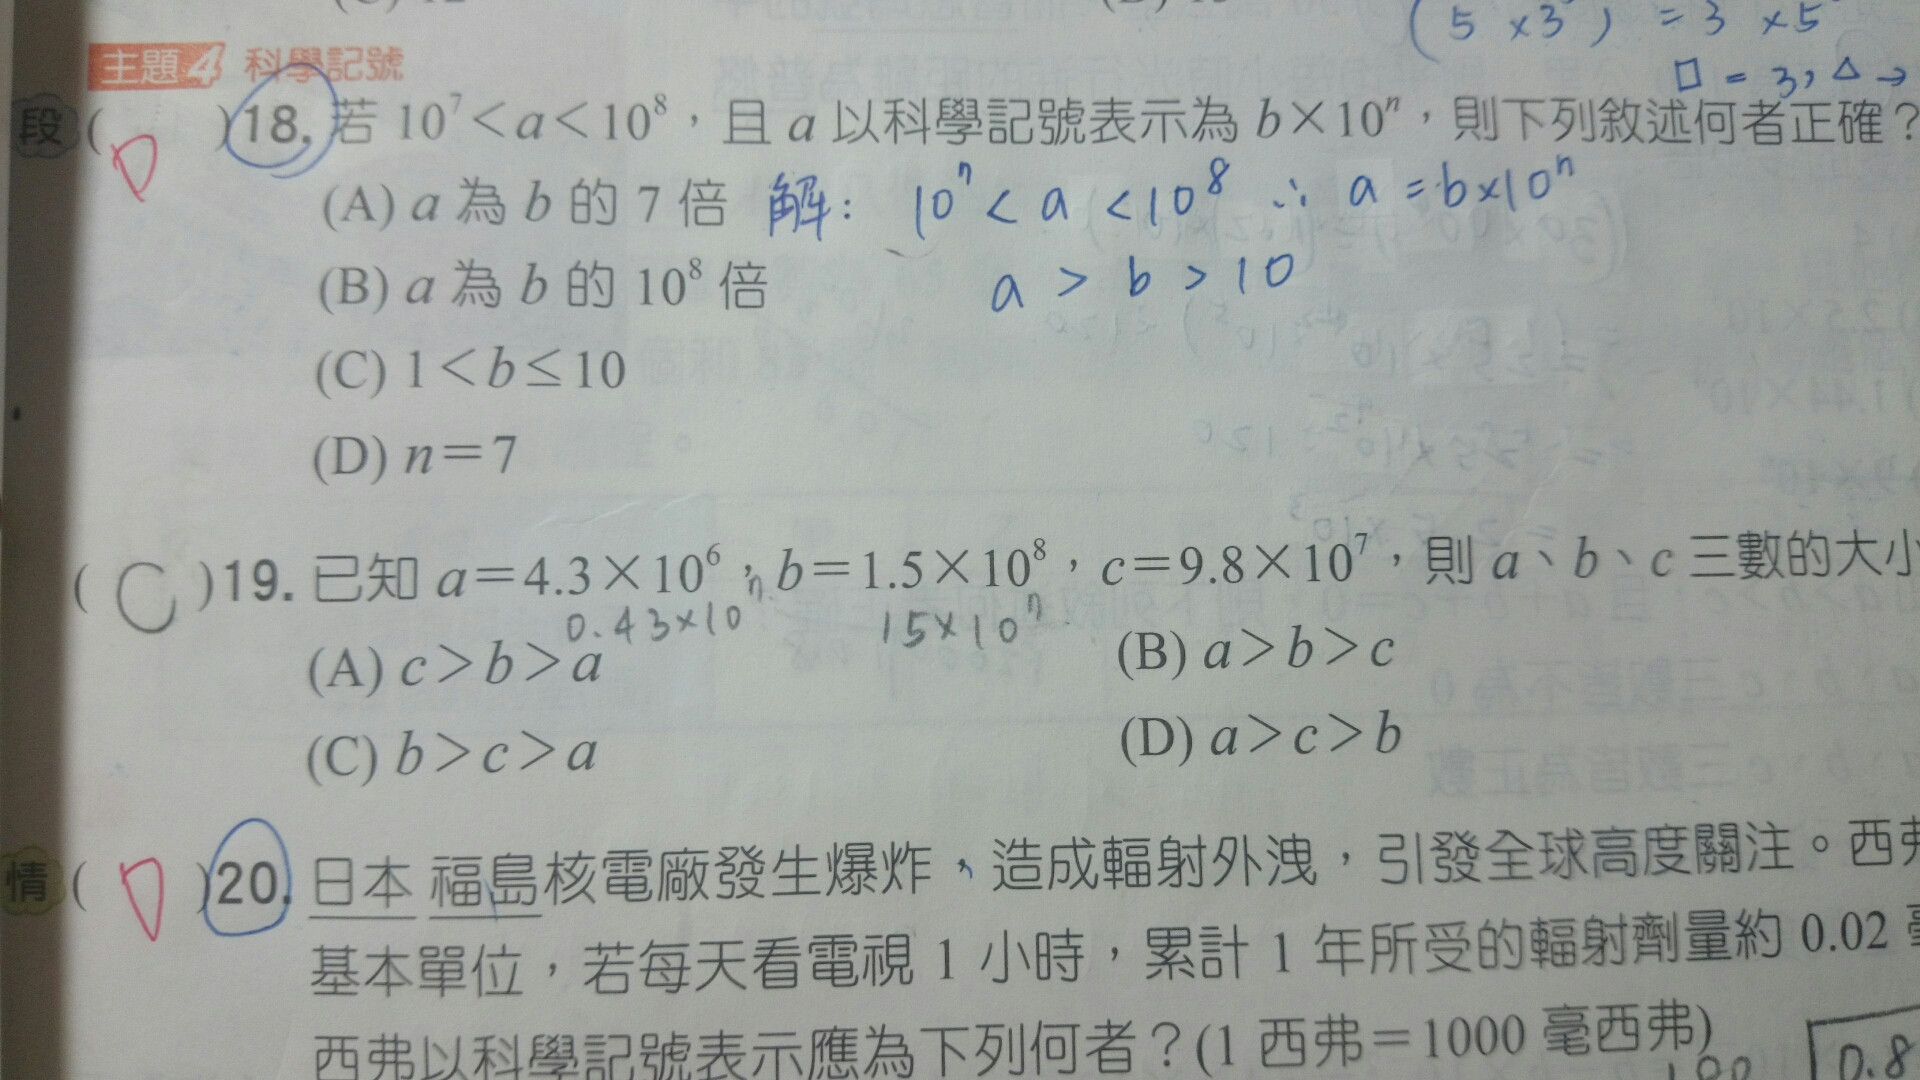 (5 × 3 ) = 3 × 5
主題4 科學記號
□ = 3, △ →
段 ( D )18. 若 10⁷<a<10⁸，且 a 以科學記號表示為 b×10ⁿ，則下列敘述何者正確？
(A) a 為 b 的 7 倍 解: 10⁷ < a < 10⁸ ∴ a = b×10ⁿ
(B) a 為 b 的 10⁸ 倍 a > b > 10
(C) 1<b≤10
(D) n=7
( C )19. 已知 a=4.3×10⁶，b=1.5×10⁸，c=9.8×10⁷，則 a、b、c 三數的大小
0.43×10⁷ 15×10⁷
(A) c>b>a (B) a>b>c
(C) b>c>a (D) a>c>b
情 ( D )20. 日本 福島核電廠發生爆炸，造成輻射外洩，引發全球高度關注。西弗
基本單位，若每天看電視 1 小時，累計 1 年所受的輻射劑量約 0.02
西弗以科學記號表示應為下列何者？(1 西弗=1000 毫西弗)
0.8